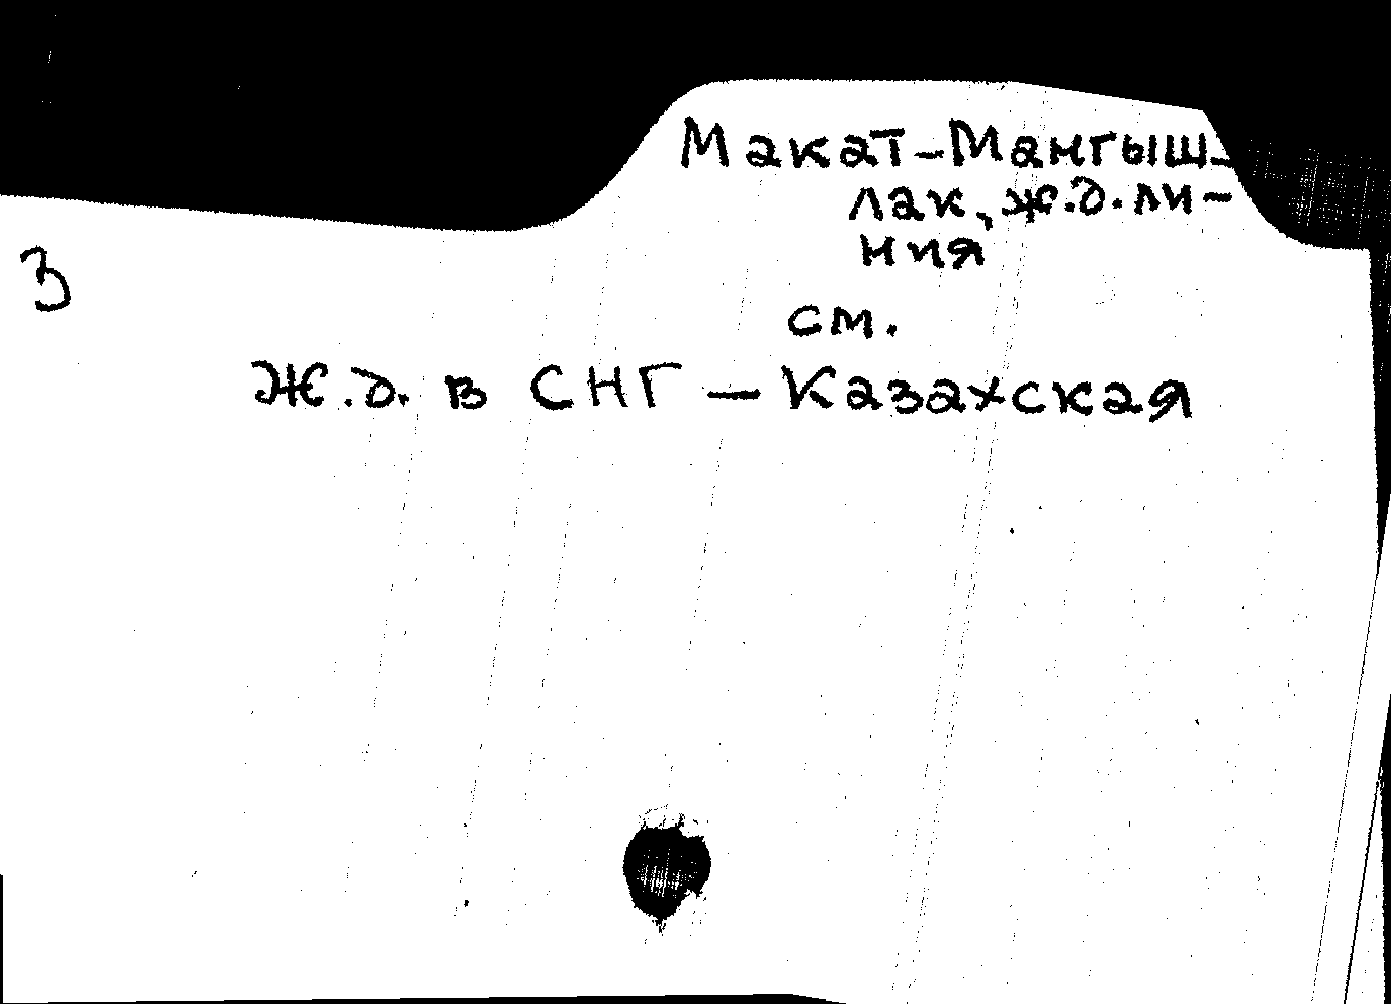 Макат-Мангыш-
лак, ж.д. ли-
ния
З
см.
Ж.д. в СНГ — Казахская